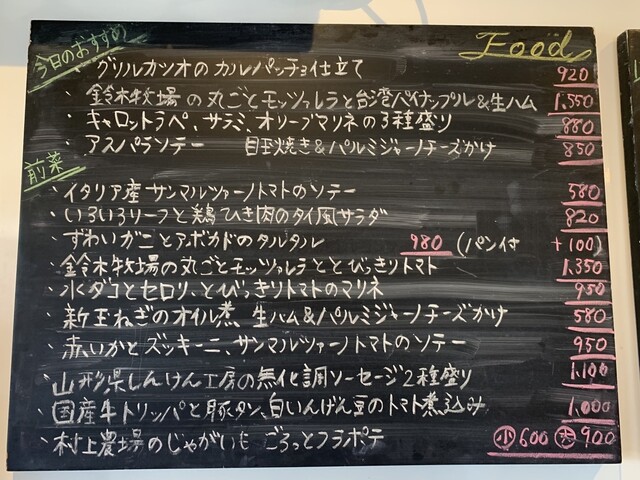 Food
今日のおすすめ
・グリルカツオのカルパッチョ仕立て 920
・鈴木牧場の丸ごとモッツァレラと台湾パイナップル&生ハム 1,550
・キャロットラペ、サラミ、オリーブマリネの3種盛り 880
・アスパラソテー 目玉焼き&パルミジャーノチーズかけ 850
前菜
・イタリア産サンマルツァーノトマトのソテー 580
・いろいろリーフと鶏ひき肉のタイ風サラダ 820
・ずわいガニとアボカドのタルタル 980 (パン付 +100)
・鈴木牧場の丸ごとモッツァレラととびっきりトマト 1,350
・水ダコとセロリ、とびっきりトマトのマリネ 950
・新玉ねぎのオイル煮 生ハム&パルミジャーノチーズかけ 580
・赤いかとズッキーニ、サンマルツァーノトマトのソテー 950
・山形県しんけん工房の無化調ソーセージ2種盛り 1,100
・国産牛トリッパと豚タン、白いんげん豆のトマト煮込み 1,000
・村上農場のじゃがいも ごろっとフラポテ 小600 大900